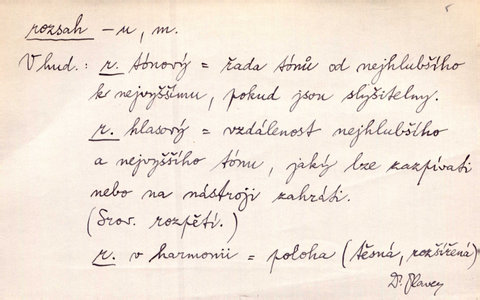 rozsah -u, m.
V hud.: r. tónový = řada tónů od nejhlubšího
k nejvyššímu, pokud jsou slyšitelny.
r. hlasový = vzdálenost nejhlubšího
a nejvyššího tónu, jaký lze zazpívati
nebo na nástroji zahráti.
(Srov. rozpětí.)
r. v harmonii = poloha (těsná, rozšířená)
Dr.